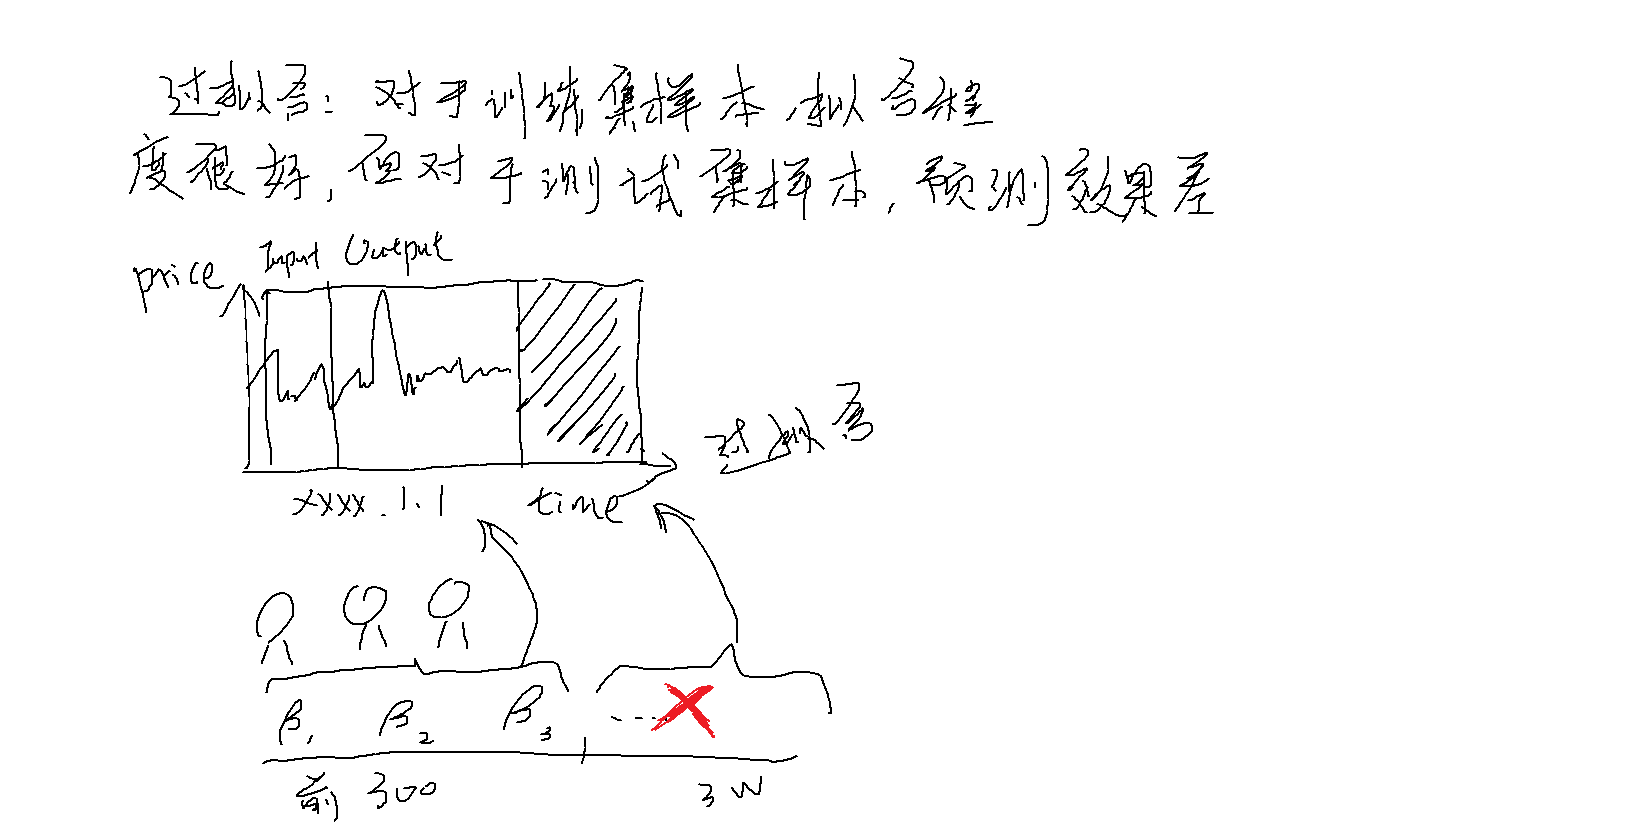 过拟合：对于训练集样本，拟合程
度很好，但对于测试集样本，预测效果差
Input Output
price
过拟合
xxxx.1.1 time
β1 β2 β3 ....
前300 3W